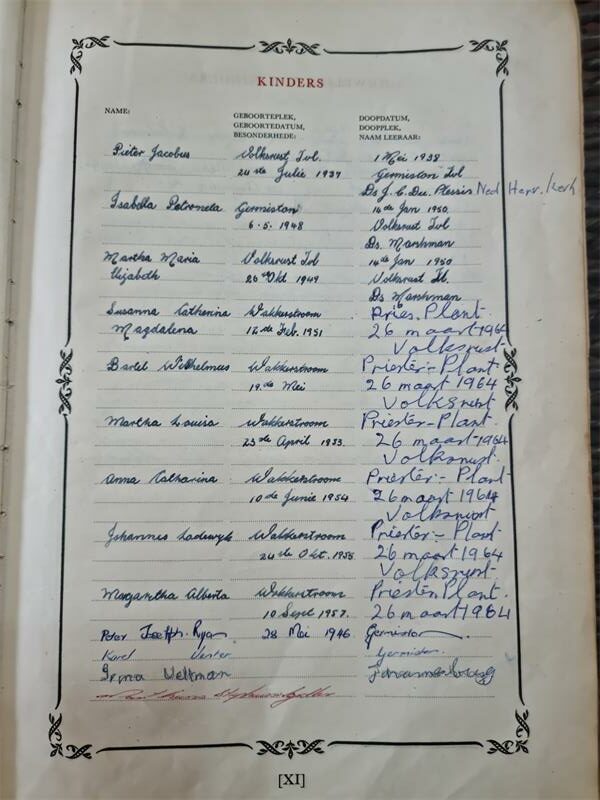 KINDERS
NAME:
GEBOORTEPLEK,
GEBOORTEDATUM,
BESONDERHEDE:
DOOPDATUM,
DOOPPLEK,
NAAM LEERAAR:
Pieter Jacobus Volksrust Tvl. 1 Mei 1938
24ste Julie 1937 Germiston Tvl
Ds J. C. Du Plessis Ned Herv. Kerk
Isabella Petroneta Germiston 14de Jan 1950
6.5.1948 Volksrust Tvl
Ds. Marshman
Martha Maria Volksrust Tvl 14de Jan 1950
Elizabeth 26ste Okt 1949 Volksrust Tvl.
Ds Marshman
Susanna Catherina Wakkerstroom Pries. Plant.
Magdalena 14de Feb. 1951 26 maart 1964
Volksrust
Bartel Wilhelmus Wakkerstroom Priester-Plant
19de Mei 26 maart 1964
Volksrust
Martha Louisa Wakkerstroom Priester-Plant.
23ste April 1953. 26 maart 1964
Volksrust.
Anna Catharina Wakkerstroom Priester-Plant
10de Junie 1954 26 maart 1964
Volksrust
Johannes Lodewyk Wakkerstroom Priester-Plant
24ste Okt. 1955 26 maart 1964
Volksrust
Margaretha Alberta Wakkerstroom Priester Plant.
10 Sept 1957. 26 maart 1964
Peter Joseph Ryan 28 Mei 1946 Germiston
Karel Venter Germiston
Weltman
[XI]